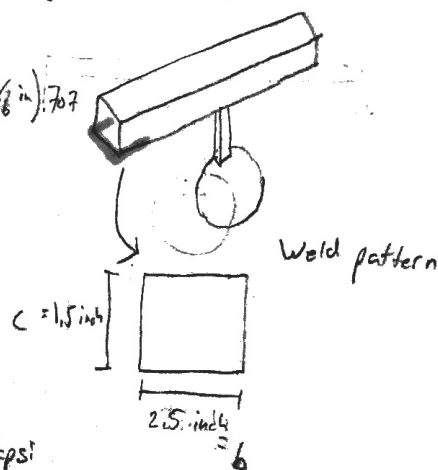 in).707
Weld pattern
C = 1,5 inch
2.5 inch
= b
psi